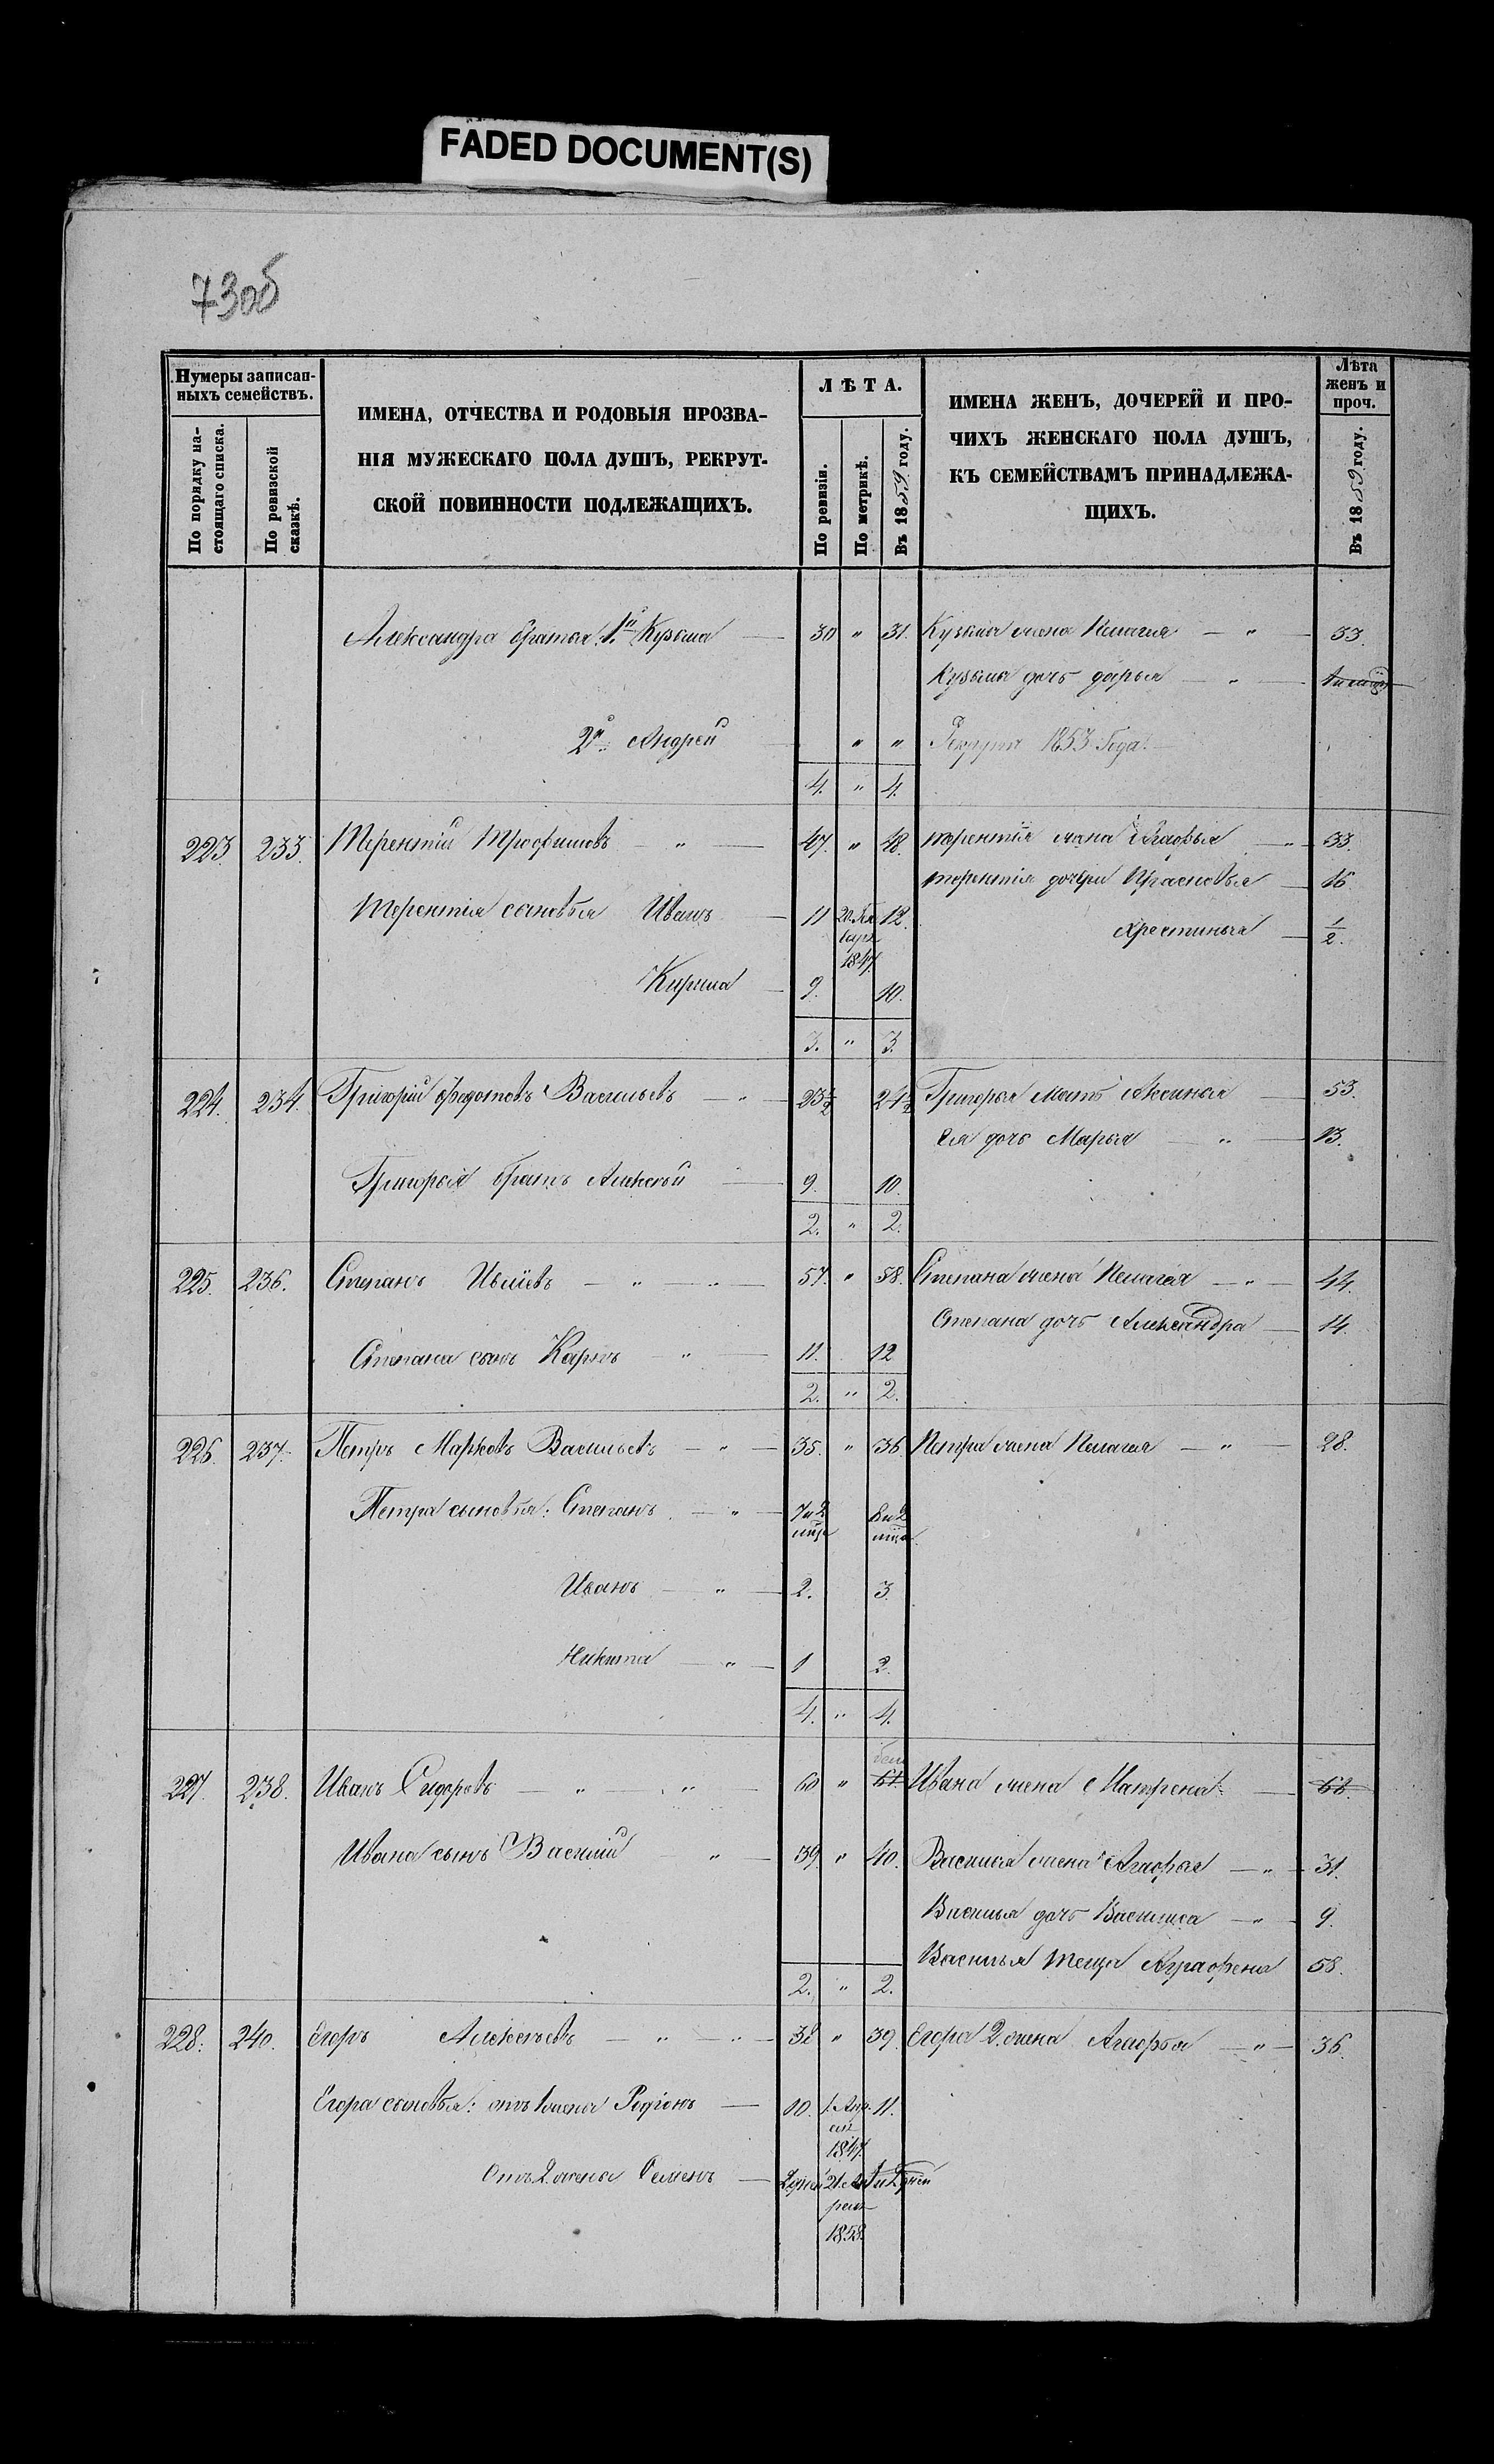 FADED DOCUMENT(S)
730б
Нумеры записан-
ныхъ семействъ.
По порядку на-
стоящаго списка.
По ревизской
сказкѣ.
ИМЕНА, ОТЧЕСТВА И РОДОВЫЯ ПРОЗВА-
НІЯ МУЖЕСКАГО ПОЛА ДУШЪ, РЕКРУТ-
СКОЙ ПОВИННОСТИ ПОДЛЕЖАЩИХЪ.
ЛѢТА.
По ревизіи.
По метрикѣ.
Въ 1859 году.
ИМЕНА ЖЕНЪ, ДОЧЕРЕЙ И ПРО-
ЧИХЪ ЖЕНСКАГО ПОЛА ДУШЪ,
КЪ СЕМЕЙСТВАМЪ ПРИНАДЛЕЖА-
ЩИХЪ.
Лѣта
женъ и
проч.
Въ 1859 году.
Александра братья: 1й Кузьма — 30 " 31. Кузьмы жена Пелагея — " — 33.
Кузьмы дочь Дарья — " —
2й Андрей " " Рекрутъ 1853 Года.
4. " 4.
223. 233. Терентій Трофимовъ " — 47. " 48. Терентія жена Агафья — " — 33.
Терентія дочери Прасковья — 16.
Терентія сыновья Иванъ — 11 20 1847 12. Хрестинья — 1/2.
Кирила — 9. 10.
3. " 3.
224. 234. Григорій Федотовъ Васильевъ — " — 23 1/2 24 1/2 Григорья мать Аксинья — 53.
Ея дочь Марья — " — 13.
Григорья братъ Алексей — 9. 10.
2. " 2.
225. 236. Степанъ — " — " — 57. " 58. Степана жена Пелагея — " — 44.
Степана дочь Александра — 14.
Степана сынъ Карпъ — " — 11. 12
2. " 2.
226. 237. Петръ Марковъ Васильевъ — " — 35. " 36. Петра жена Пелагея — " — 28.
Петра сыновья: Степанъ — " — 7 и 2 мца 8 и 2 мца.
Иванъ — " — 2. 3.
Никита — " — 1 2.
4. " 4.
227. 238. Иванъ Сидоровъ — " — " — 60 " 61 Ивана жена Матрена —
Ивана сынъ Василий — " — 39 " 40. Василья жена Агафья — " — 31.
Василья дочь Василиса — " — 9.
Василья теща Аграфена 58.
2. " 2.
228. 240. Егоръ Алексеевъ — " — " — 38 " 39. Егора 2. жена Агафья — " — 36.
Егора сыновья: отъ 1 жены Родіонъ — 10. 1. Апр еля 1847. 11.
Отъ 2. жены Семенъ — 2 дней 21. Ап реля 1858. 1 и 2 дней